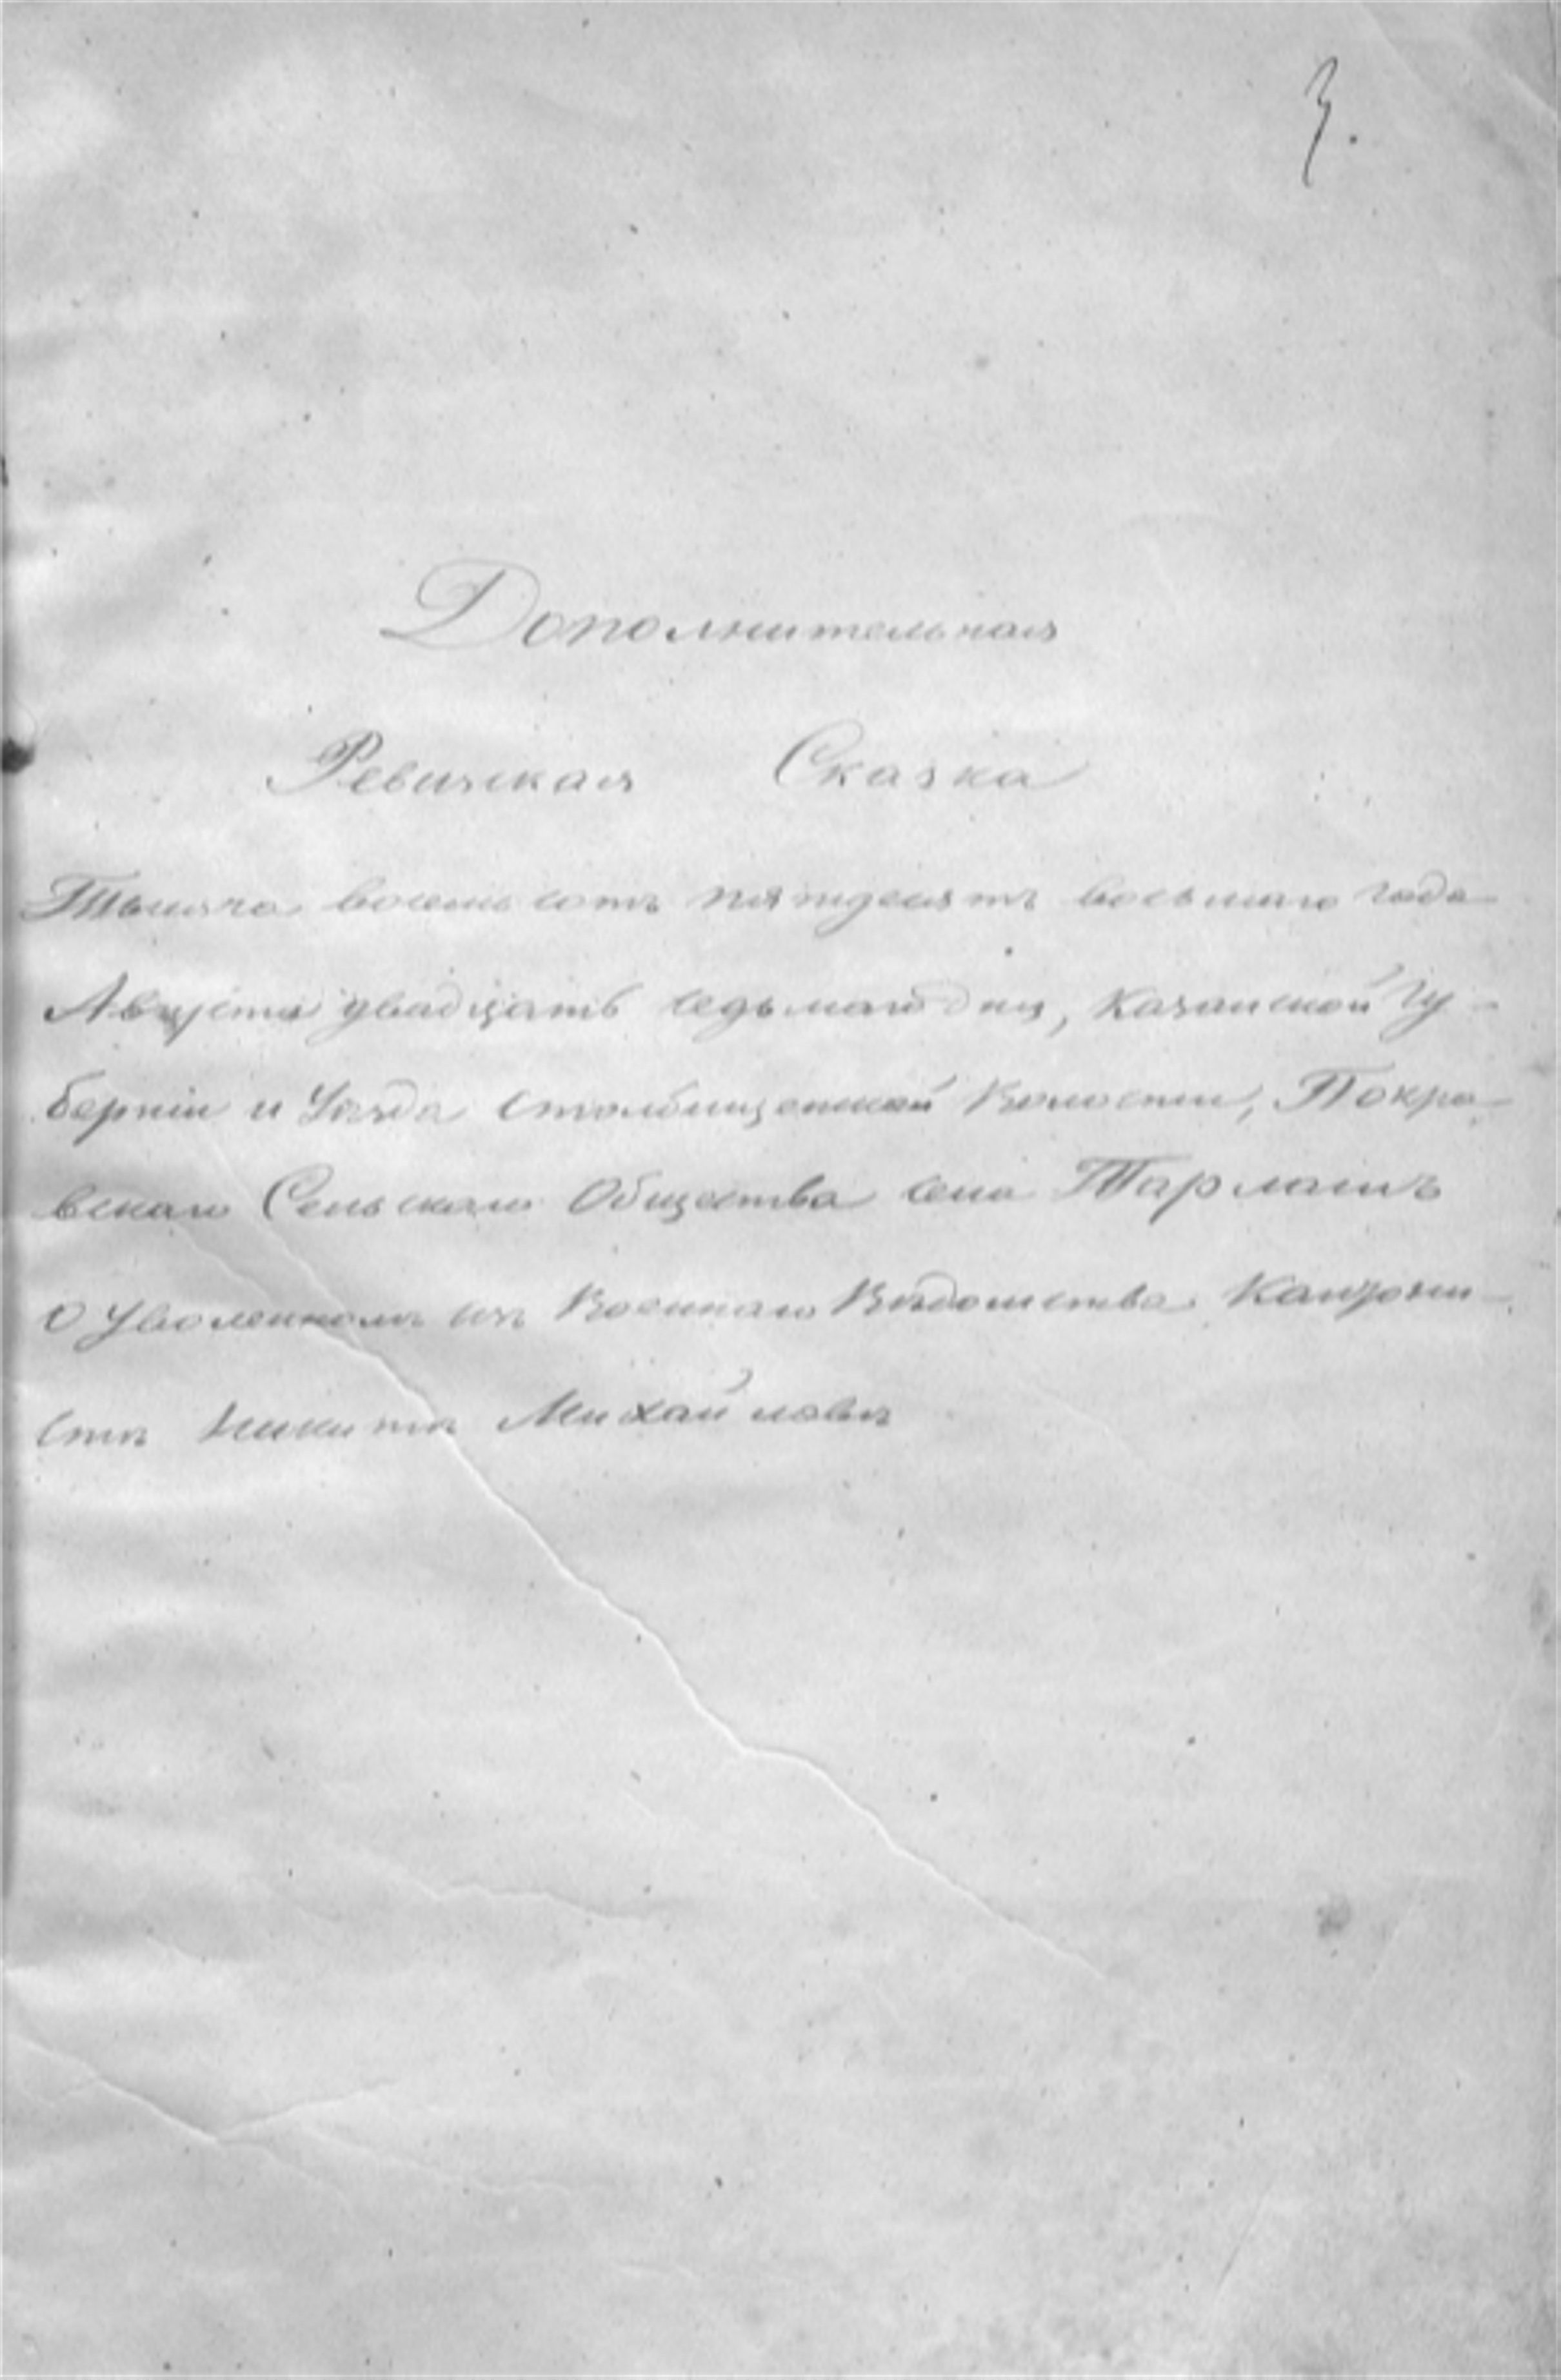 3.
Дополнительная
Ревизская Сказка
Тысяча восемь сотъ пятьдесятъ восьмаго года
Августа двадцать седьмаго дня, Казанской Гу-
берніи и Уѣзда Столбищенской Волости, Покро-
вскаго Сельскаго Общества села Тарлашъ
О Уволенномъ изъ Военнаго Вѣдомства Кантони-
стѣ Никитѣ Михайловѣ